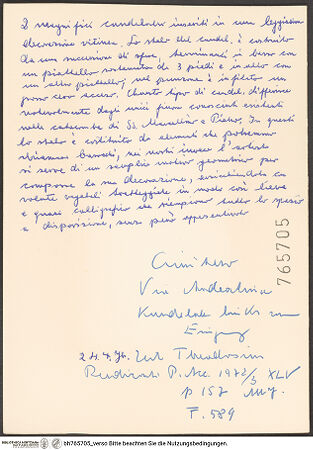 2 magnifici candelabri inseriti in una leggera
decorazione vitinea. Lo stelo del candel. è costruito
da una successione di sfere, terminanti in basso con
un piattello sostenuto da 3 piedi e in alto con
un altro piattello, nel puntone è infilato un
grosso cero acceso. Questo tipo di candel. differisce
notevolmente dagli unici finora conosciuti esistenti
nelle catacombe di SS. Marcellino e Pietro. In questi
lo stelo è costituito da elementi che potremmo
chiamare barocchi, nei nostri invece l'artista
si serve di un semplice motivo geometrico per
comporre la sua decorazione, arricchendola con
volute vegetali tratteggiate in modo così lieve
e quasi calligrafico che riempiono tutto lo spazio
a disposizione, senza però appesantirlo
765705
Cimitero
Via Andreolina
Kandelaber links vom
Eingang
24.4.76. Zeit Theodosius
Rendiconti P. Acc. 1972/3 XLV
p 157
F. 589
bh765705_verso Bitte beachten Sie die Nutzungsbedingungen.